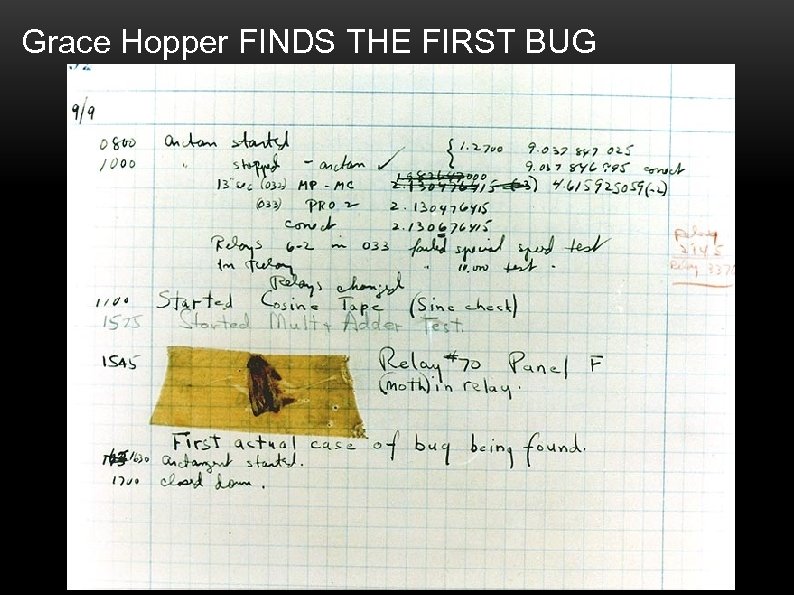 Grace Hopper FINDS THE FIRST BUG
9/9
0800 Antan started
1000 " stopped - antan ✓ { 1.2700 9.037 847 025
9.037 846 995 correct
13"uc (033) MP - MC 2.130476415 (-3) 4.615925059(-2)
(033) PRO 2 2.130476415
correct 2.130676415
Relays 6-2 in 033 failed special speed test
In Relay " 10.000 test.
Relay
2145
Relay 3370
Relays changed
1100 Started Cosine Tape (Sine check)
1525 Started Mult+ Adder Test.
1545 Relay #70 Panel F
(moth) in relay.
First actual case of bug being found.
1630 antangent started.
1700 closed down.